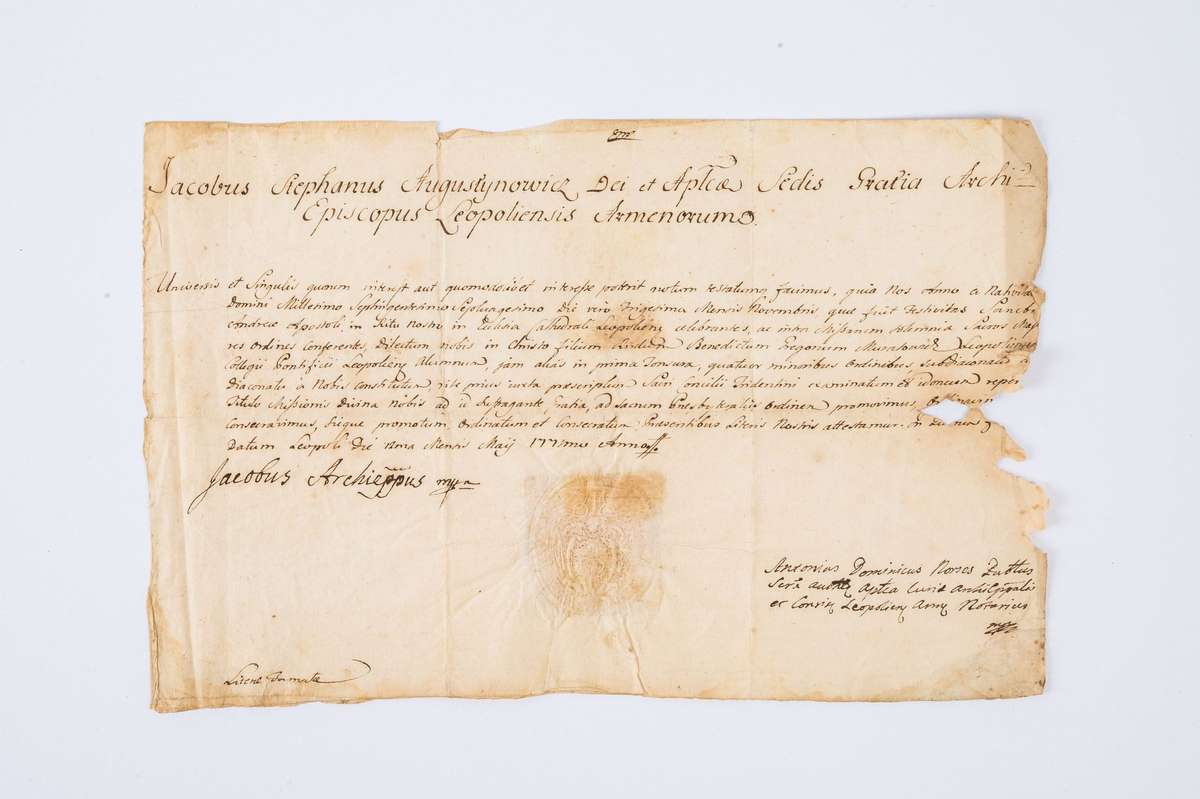 Jacobus Stephanus Augustynowicz Dei et Aptcæ Sedis Gratia Archi
Episcopus Leopoliensis Armenorum.
Universis et Singulis quorum interest aut quomodolibet interesse poterit notum testatumq facimus, quia Nos Anno a Nativita
Domini Millesimo Septingentesimo Die vero Trigesima Mensis Novembris quæ fuit Festivitas Sancti
Andreæ Apostoli, in Ritu Nostro in Ecclesia Cathedrali Leopolien celebrantes, ac intra Missarum solemnia Sacros Majo
res Ordines conferentes, Dilectum nobis in Christo filium Benedictum Gregorium
Collegii Pontificii Leopolien Alumnum, jam alias in prima Tonsura, quatuor minoribus Ordinibus, Subdiaconatu
Diaconatu a Nobis constitutum rite prius iuxta præscriptum Sacri Concilii Tridentini examinatum et idoneum reper
Titulo Missionis Divina Nobis ad id suffragante Gratia, ad Sacrum Presbyteratus Ordinem promovimus,
Consecravimus, sicque promotum, Ordinatum et Consecratum Præsentibus Literis Nostris attestamur. In quorum
Datum Leopoli Die Mensis Maij 1771mo Anno
Jacobus Archieppus mpa
Antonius Dominicus Norses
Aptca Archiepp̄alis
et Consis Leopolien Notarius
Literæ Formatæ